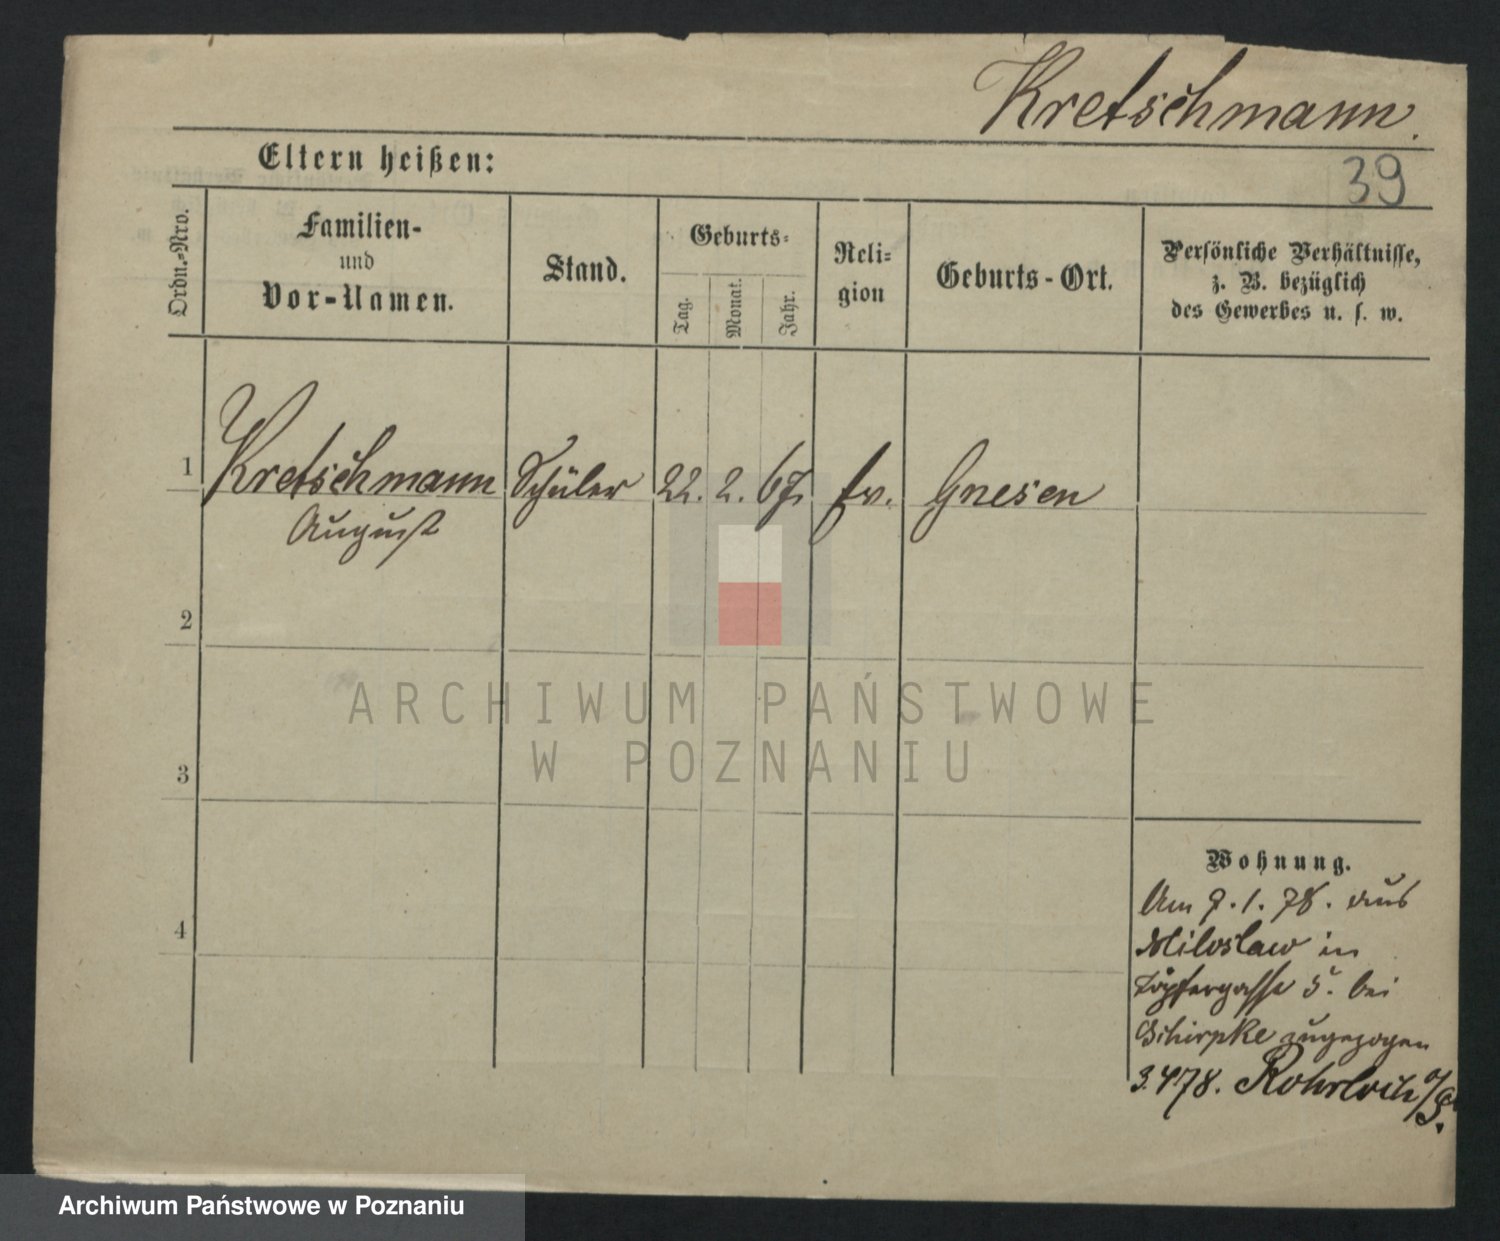 Kretschmann.
39
Eltern heißen:
Ordn.-Nro.
Familien-
und
Vor-Namen.
Stand.
Geburts-
Tag.
Monat.
Jahr.
Reli-
gion
Geburts-Ort.
Persönliche Verhältnisse,
z. B. bezüglich
des Gewerbes u. s. w.
1 Kretschmann Schüler 22. 2. 67. Ev. Gnesen
August
2
3
4
Wohnung.
Am 9.1.78. aus
Miloslaw in
Töpfergasse 5. bei
Schirpke zugezogen
3.4.78. Rohrloch
ARCHIWUM PAŃSTWOWE
W POZNANIU
Archiwum Państwowe w Poznaniu